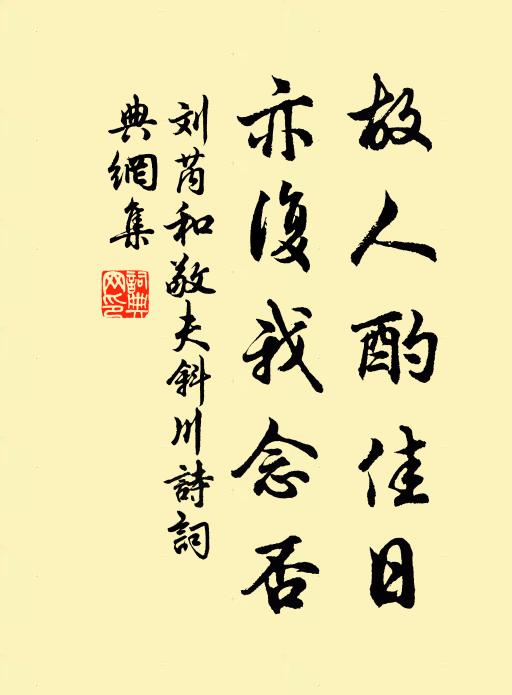 故人酌佳日
亦復我念否
刘芮和敬夫斜川詩詞
典網集
詞典
网印